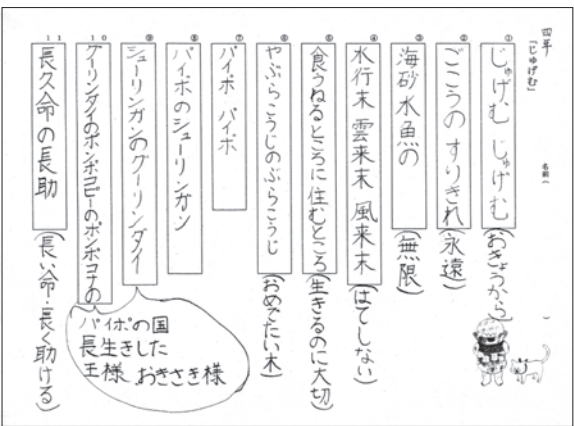 四年 「じゅげむ」 名前( )
① じゅげむ じゅげむ(おきょうから)
② ごこうの すりきれ(永遠)
③ 海砂水魚の(無限)
④ 水行末 雲来末 風来末(はてしない)
⑤ 食うねるところに住むところ(生きるのに大切)
⑥ やぶらこうじのぶらこうじ(おめでたい木)
⑦ パイポ パイポ
⑧ パイポのシューリンガン
⑨ シューリンガンのグーリンダイ
10 グーリンダイのポンポコピーのポンポコナの
11 長久命の長助(長い命・長く助ける)
パイポの国
長生きした
王様 おきさき様